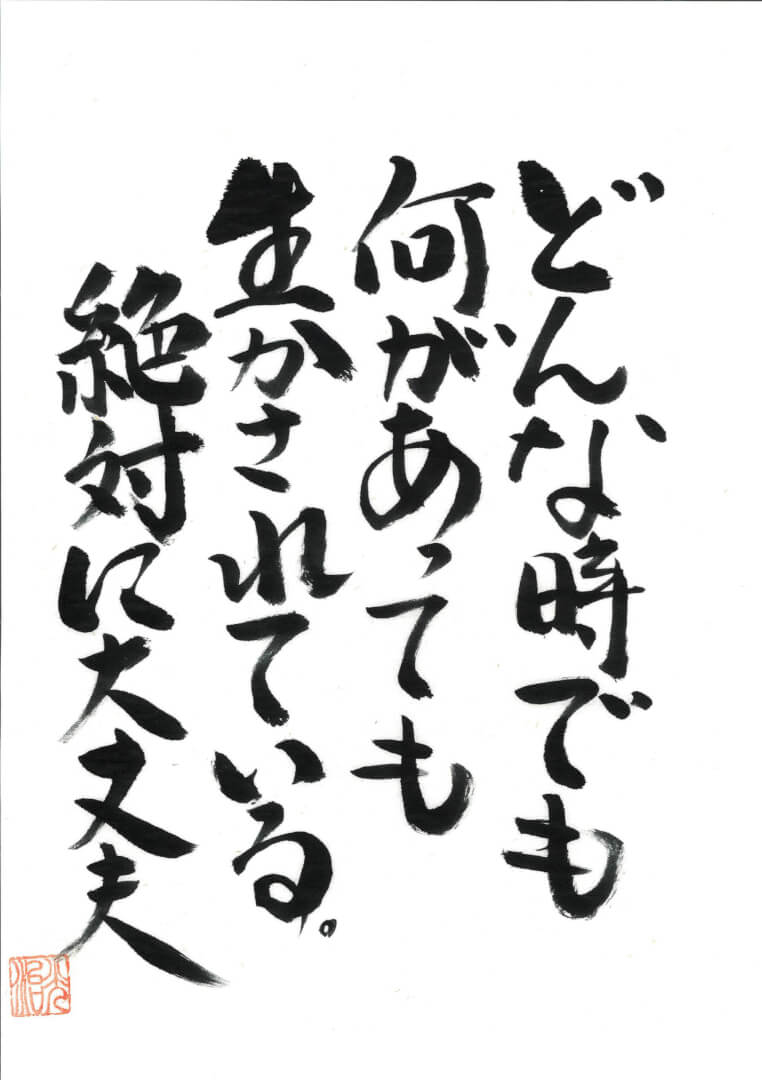 どんな時でも
何があっても
生かされている。
絶対に大丈夫